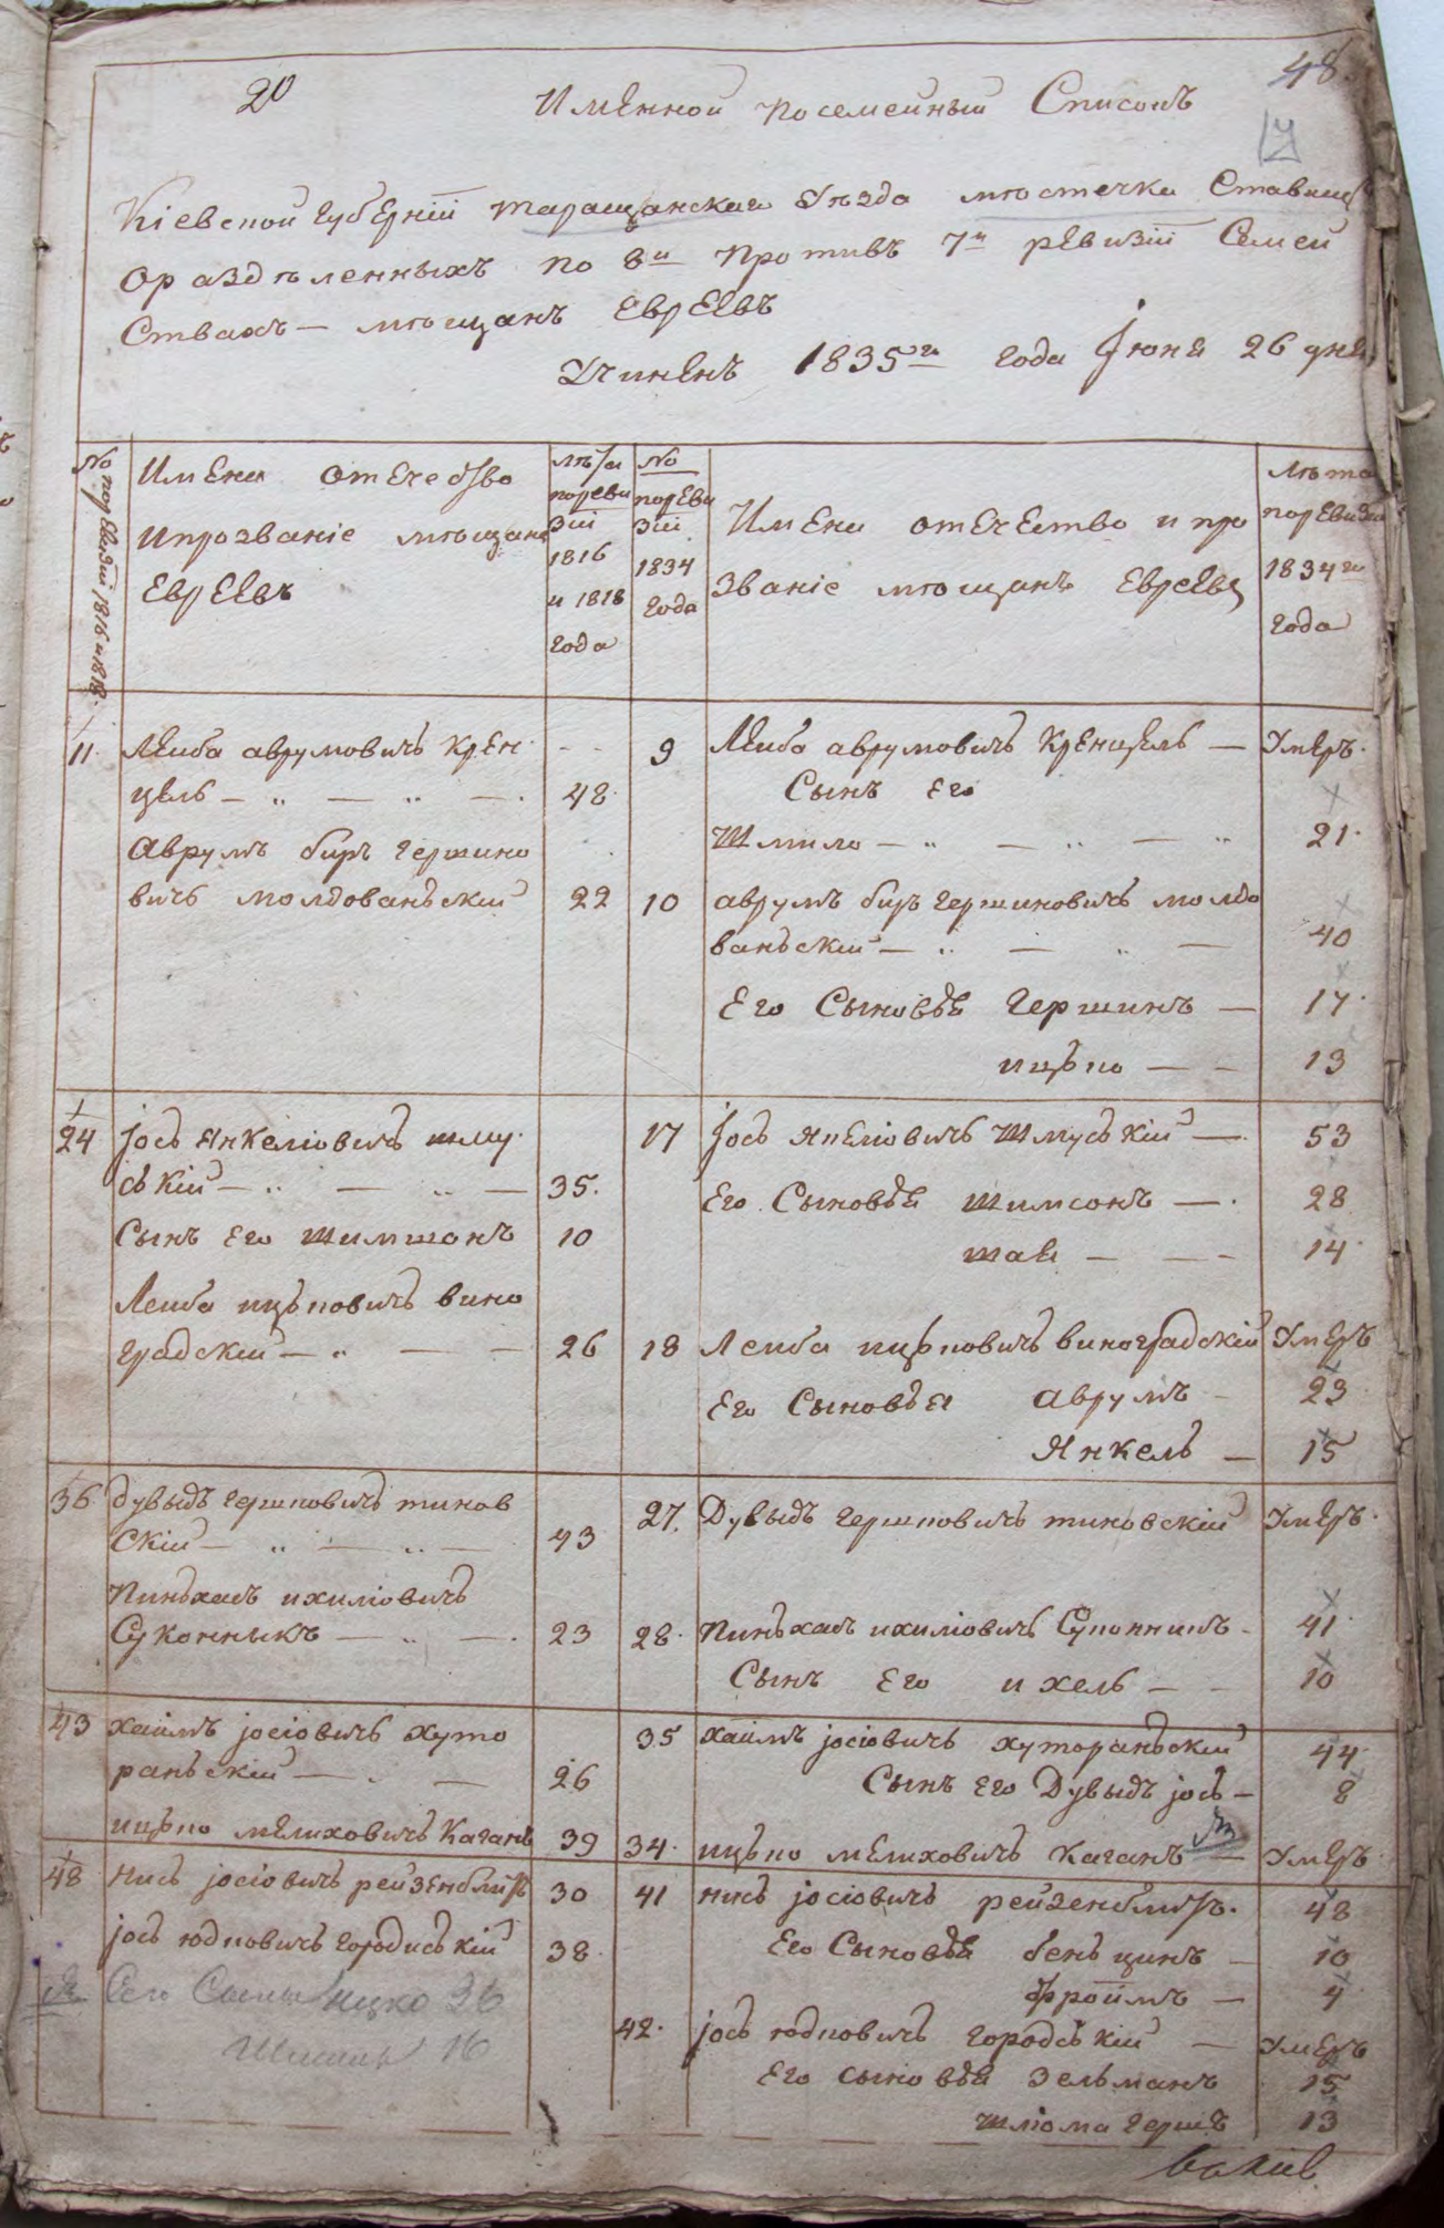 20
48
Именной посемейный Списокъ
Кіевской Губерніи Таращанскаго Уѣзда мѣстечка Ставищ
о раздѣленныхъ по 8й противъ 7й ревизіи Семей
Ствахъ — мѣщанъ Евреевъ
Учиненъ 1835го года Іюня 26 дня
№ по ревизіи 1816 и 1818
Имена отечество
и прозваніе мѣщанъ
Евреевъ
лѣта
по реви
зіи
1816
и 1818
года
№
по реви
зіи
1834
года
Имена отечество и про
званіе мѣщанъ Евреевъ
Лѣта
по ревизіи
1834го
года
11. Леиба аврумовичъ Крен - - 9 Леиба аврумовичъ Кренцель — Умеръ.
цель — „ — „ —. 48. Сынъ его
Аврумъ биръ гершко Шмило — „ — „ — „ 21.
вичъ молдованьскій 22 10 аврумъ биръ гершковичъ молдо
ваньскій — „ — „ — 40
Его Сыновья Гершикъ — 17.
ицько — - 13
24 Іось Янкеліовичъ шму 17 Іось Янкеліовичъ Шмуській —. 53
ській — „ — „ — 35. Его Сыновья Шимсонъ —. 28
Сынъ Его Шимшонъ 10 шая — - - 14.
Леиба ицьковичъ вино
градскій — „ — — 26 18 Леиба ицьковичъ виноградскій Умеръ
Его Сыновья Аврумъ - 23
Янкель — 15
36 Дувыдъ гершковичъ тинов 27. Дувыдъ гершковичъ тиновскій Умеръ.
скій — „ — „ — 43
Пиньхасъ ихиліовичъ
Суконникъ — „ —. 23 28. Пиньхасъ ихиліовичъ Суконникъ - 41.
Сынъ Его ихель — - 10
43 хаимъ іосіовичъ хуто 35 хаимъ іосіовичъ хутораньскій 44.
раньскій — . — 26 Сынъ Его Дувыдъ іось — 8
ицько мелиховичъ Каганъ 39 34. ицько мелиховичъ Каганъ — Умеръ
48 Нисъ іосіовичъ рейзенблитъ 30 41 нисъ іосіовичъ рейзенблитъ. 48
іось юдковичъ городиській 38. Его Сыновья беньцинъ — 10
Его Сыны Ицко 26 Фроимъ — 4
16 42. іось юдковичъ городській — Умеръ
Его сыновья Зельманъ 15
шліома гершъ 13